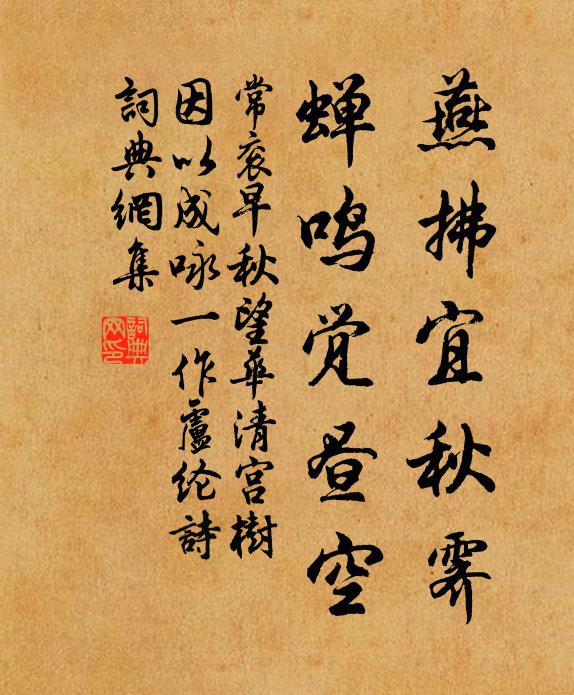 燕拂宜秋霁
蝉鸣觉昼空
常衮早秋望华清宫樹
因以成咏一作盧纶詩
詞典網集
詞典网印